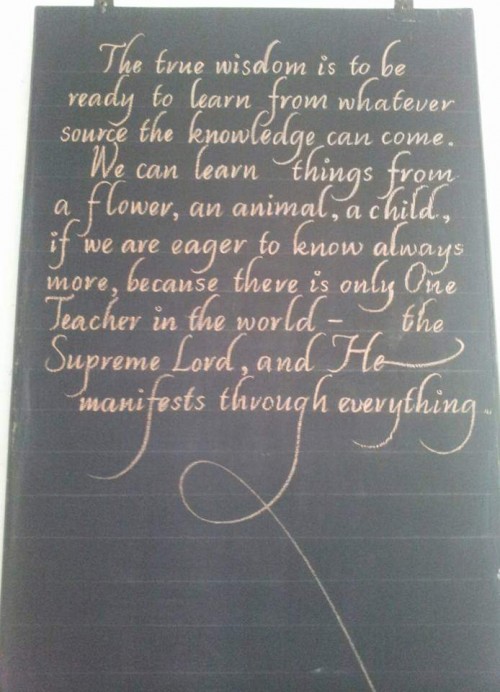 The true wisdom is to be
ready to learn from whatever
source the knowledge can come.
We can learn things from
a flower, an animal, a child.,
if we are eager to know always
more, because there is only One
Teacher in the world - the
Supreme Lord, and He
manifests through everything.